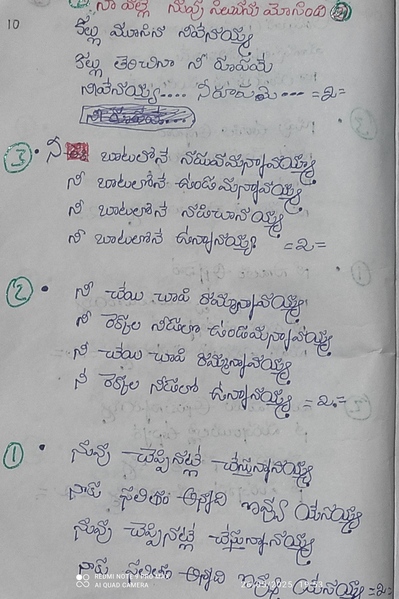 10
నా వల్లే నువ్వు సిలువను మోసింది
కళ్లు మూసినా నీవేనయ్య
కళ్లు తెరిచినా నీ రూపమే
నీవేనయ్య.... నీ రూపమే... =2=
3 • నీ బాటలోనే నడువమన్నావయ్య
నీ బాటలోనే ఉండమన్నావయ్య
నీ బాటలోనే నడిచానయ్య
నీ బాటలోనే ఉన్నానయ్య =2=
2 • నీ చేయి చాపి రమ్మన్నావయ్య
నీ రెక్కల నీడలో ఉండమన్నావయ్య
నీ చేయి చాపి రమ్మన్నావయ్య
నీ రెక్కల నీడలో ఉన్నానయ్య =2=
1 • నువ్వు చెప్పినట్లే చేస్తున్నానయ్య
నాకు ఫలితం అన్నది ఇవ్వ యేసయ్య
నువ్వు చెప్పినట్లే చేస్తున్నానయ్య
నాకు ఫలితం అన్నది ఇవ్వ యేసయ్య =2=
REDMI NOTE 9 PRO MAX
AI QUAD CAMERA